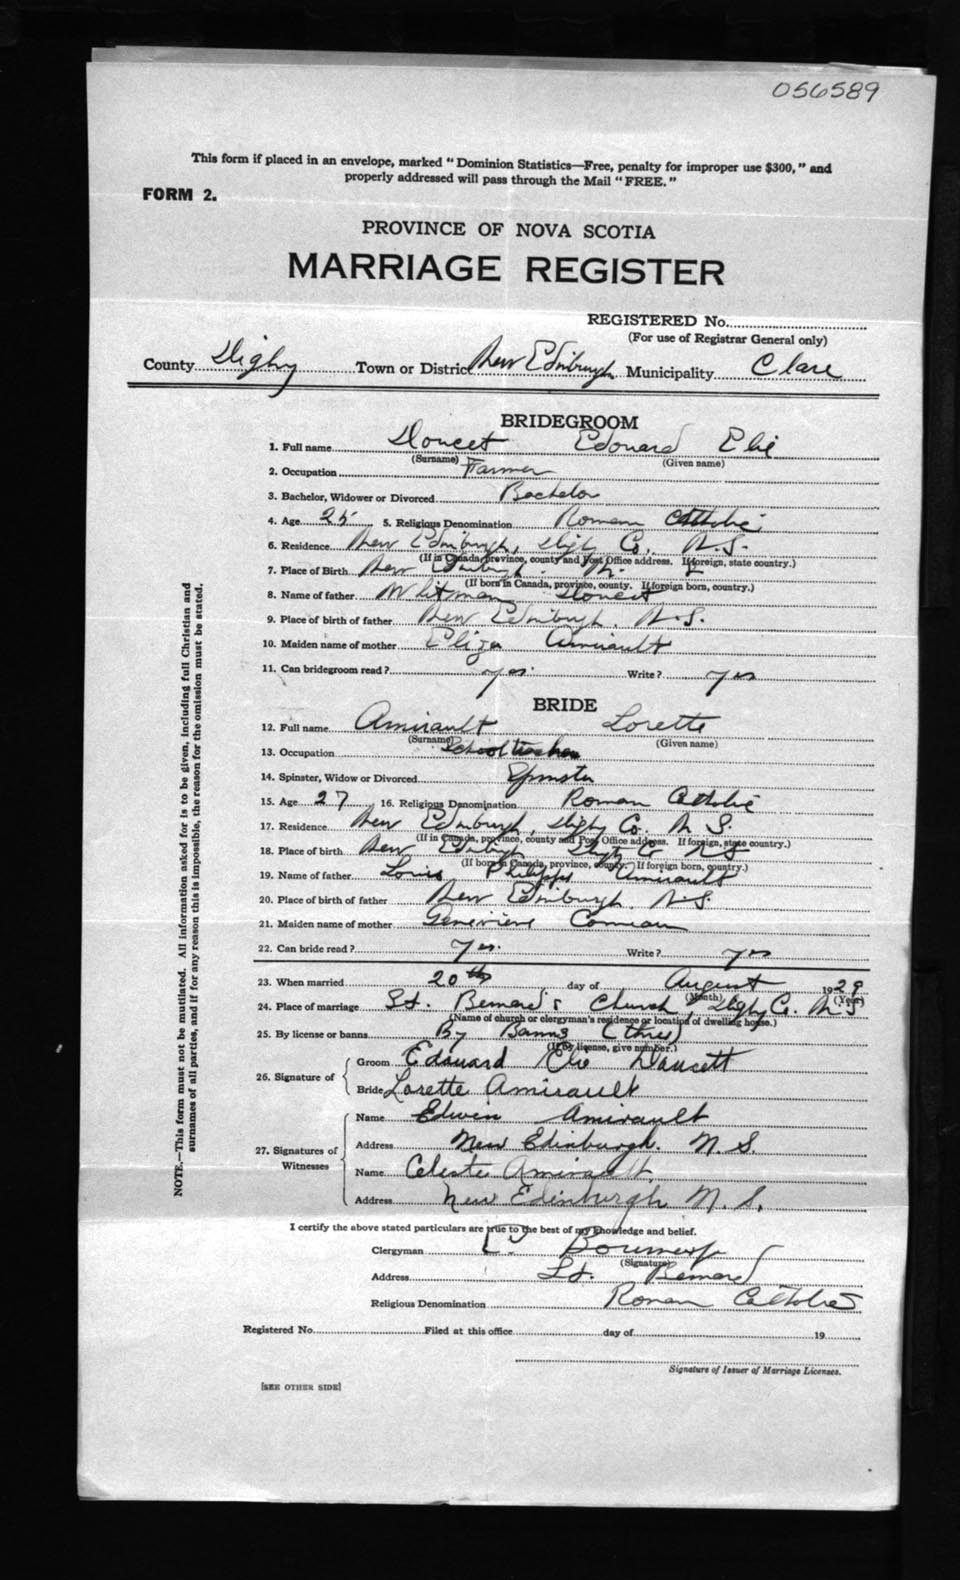 056589
This form if placed in an envelope, marked "Dominion Statistics—Free, penalty for improper use $300," and
properly addressed will pass through the Mail "FREE."
FORM 2.
PROVINCE OF NOVA SCOTIA
MARRIAGE REGISTER
REGISTERED No.
(For use of Registrar General only)
County Digby Town or District New Edinburgh Municipality Clare
BRIDEGROOM
1. Full name Doucet Edouard Elie
(Surname) (Given name)
2. Occupation Farmer
3. Bachelor, Widower or Divorced Bachelor
4. Age 25 5. Religious Denomination Roman Catholic
6. Residence New Edinburgh, Digby Co. N.S.
(If in Canada, province, county and Post Office address. If foreign, state country.)
7. Place of Birth New Edinburgh
(If born in Canada, province, county. If foreign born, country.)
8. Name of father Whitman Doucet
9. Place of birth of father New Edinburgh. N.S.
10. Maiden name of mother Eliza Amirault
11. Can bridegroom read? yes Write? yes
BRIDE
12. Full name Amirault Lorette
(Surname) (Given name)
13. Occupation School teacher
14. Spinster, Widow or Divorced Spinster
15. Age 27 16. Religious Denomination Roman Catholic
17. Residence New Edinburgh, Digby Co. N S.
(If in Canada, province, county and Post Office address. If foreign, state country.)
18. Place of birth New Edinburgh Digby Co NS
(If born in Canada, province, county. If foreign born, country.)
19. Name of father Louis Philippe Amirault
20. Place of birth of father New Edinburgh. N.S.
21. Maiden name of mother Genevieve Comeau
22. Can bride read? yes. Write? yes
23. When married 20th day of August 1929
(Month) (Year)
24. Place of marriage St. Bernard's Church, Digby Co. N S
(Name of church or clergyman's residence or location of dwelling house.)
25. By license or banns By Banns (three)
(If by license, give number.)
26. Signature of Groom Edouard Elie Doucett
Bride Lorette Amirault
27. Signatures of Witnesses Name Edwin Amirault
Address New Edinburgh. N. S.
Name Celeste Amirault.
Address New Edinburgh N. S.
I certify the above stated particulars are true to the best of my knowledge and belief.
Clergyman
(Signature)
Address St. Bernard
Religious Denomination Roman Catholic
Registered No. Filed at this office day of 19
Signature of Issuer of Marriage Licenses.
[SEE OTHER SIDE]
NOTE.—This form must not be mutilated. All information asked for is to be given, including full Christian and
surnames of all parties, and if for any reason this is impossible, the reason for the omission must be stated.